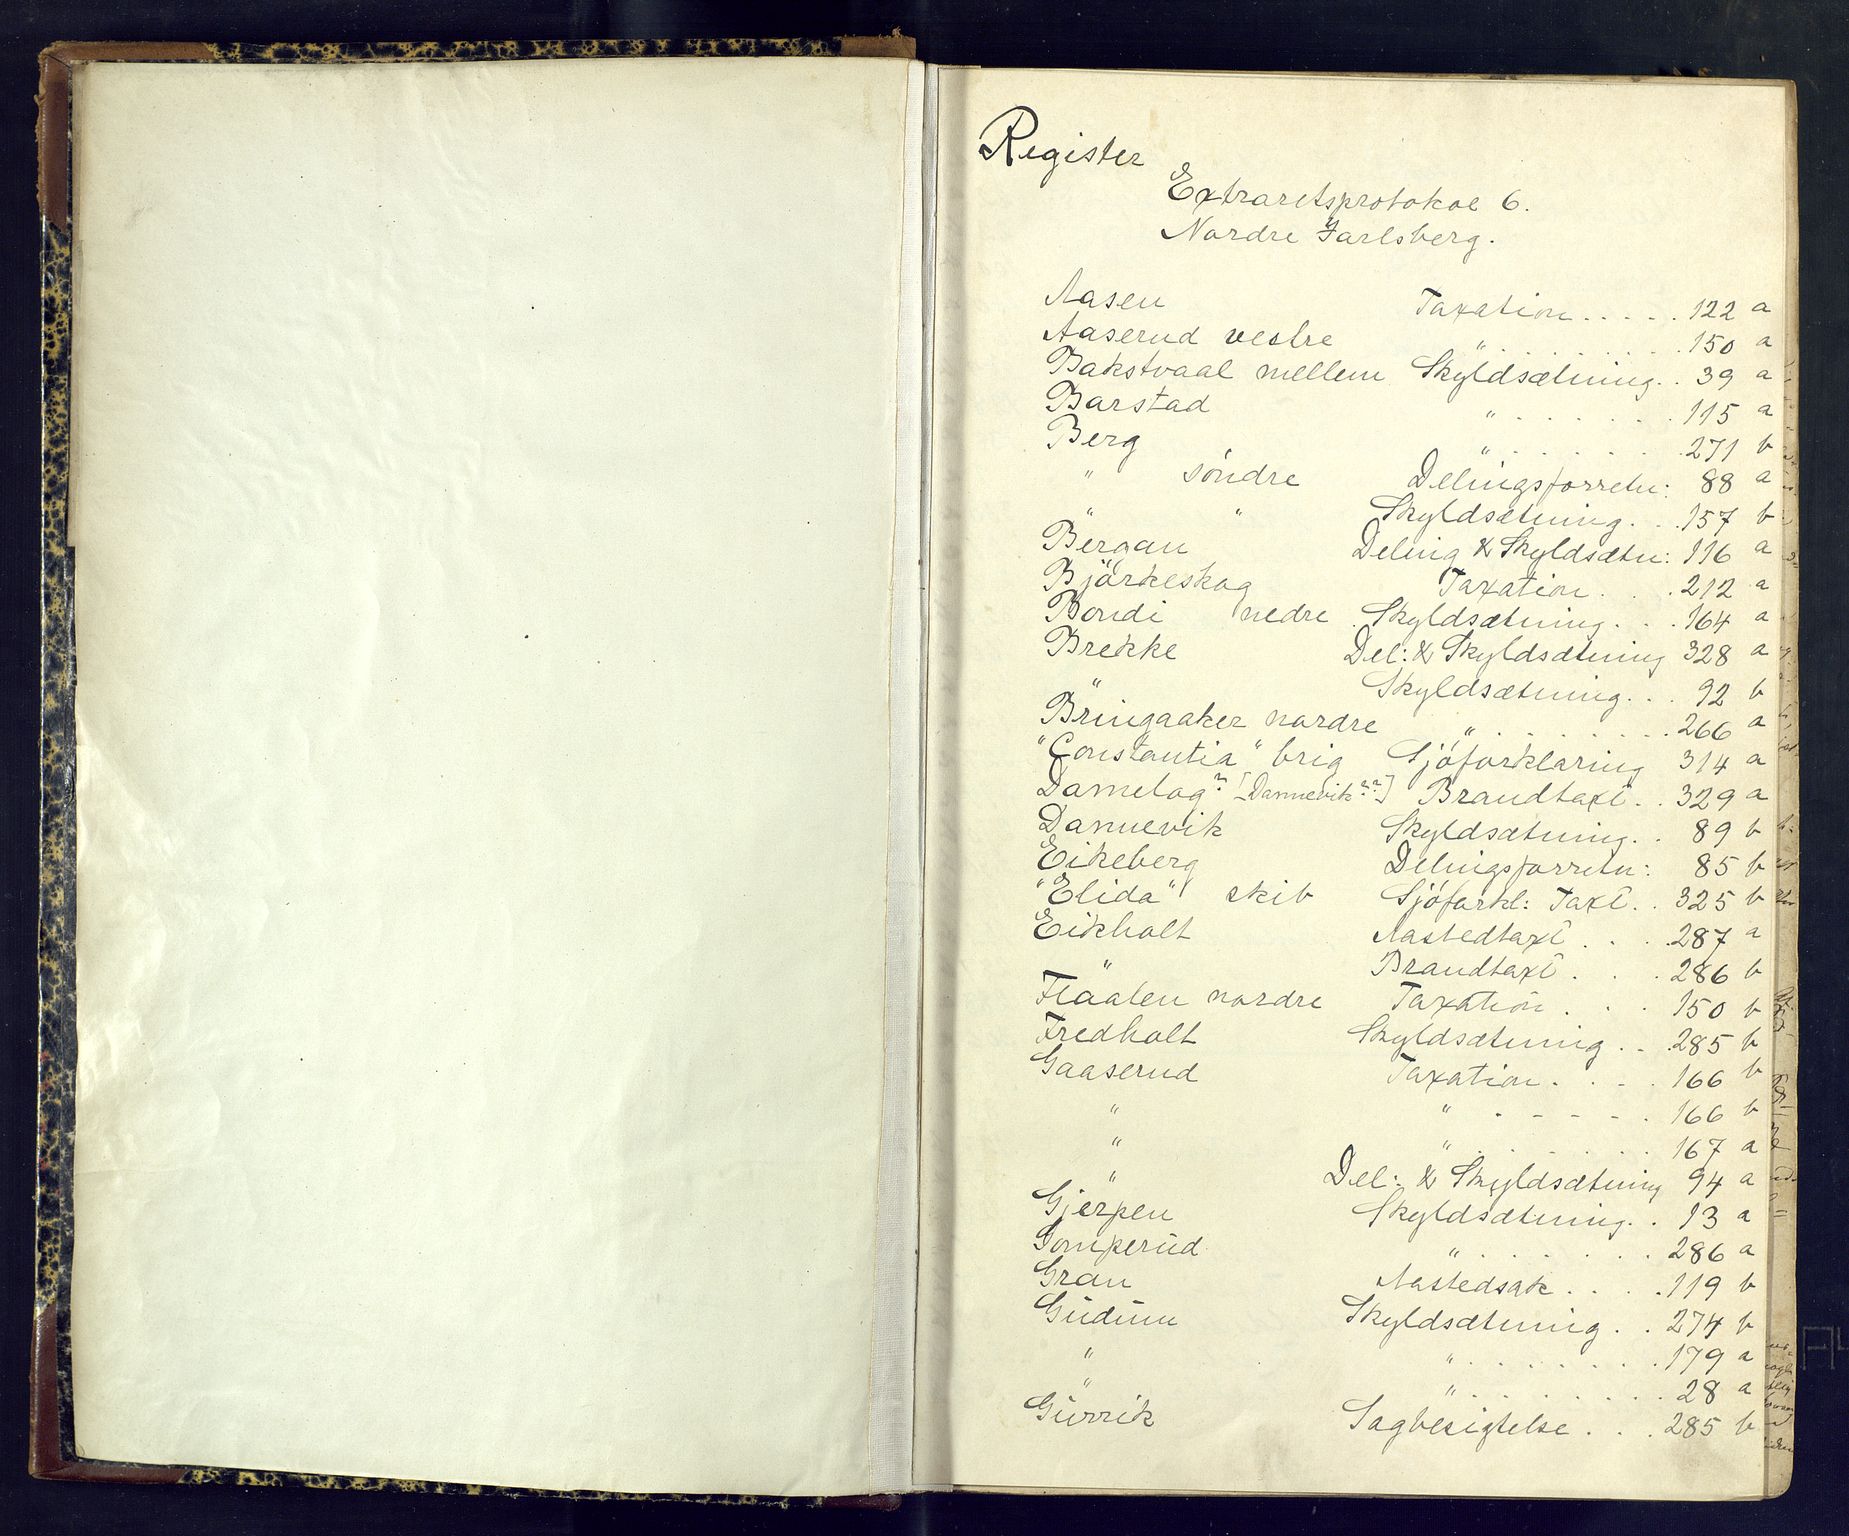 Register
Extraretsprotokol 6.
Nordre Jarlsberg.
Aasen Taxation ..... 122 a
Aaserud vestre " ....... 150 a
Bakstvaal mellem Skyldsætning.. 39 a
Barstad " ...... 115 a
Berg " ...... 271 b
" söndre Delingsforretn: 88 a
" " Skyldsætning. . . 157 b
Bergan Deling & Skyldsætn: 116 a
Björkeskog Taxation . . . 212 a
Bondi nedre Skyldsætning. . . 164 a
Brekke Del: & Skyldsætning 328 a
" Skyldsætning. . . 92 b
Bringaaker nordre " ....... 266 a
"Constantia" brig Sjöforklaring 314 a
Damelog? [Dannevik??] Brandtaxt. . 329 a
Dannevik Skyldsætning. . 89 b
Eikeberg Delingsforretn: 85 b
"Elida" skib Sjöforkl: Taxt. . 325 b
Eikholt Aastedtaxt . . . . 287 a
" Brandtaxt . . . . 286 b
Flåaten nordre Taxation . . . 150 b
Fredholt Skyldsætning . . . 285 b
Gaaserud Taxation . . . . 166 b
" " - - - - . 166 b
" " ...... 167 a
" Del: & Skyldsætning 94 a
Gjerpen Skyldsætning. . 13 a
Gomperud " ...... 286 a
Gran Aastedsak . . . . 119 b
Gudum Skyldsætning . . 274 b
" " ....... 179 a
" " ....... 28 a
Gurrik Sagbesigtelse . . . 285 b